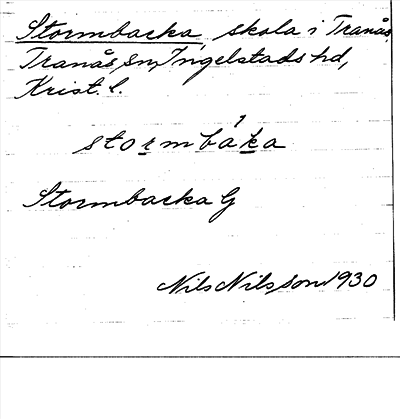 Stormbacka, skola i Tranås,
Tranås sn, Ingelstads hd,
Krist. l.
stormbáka
Stormbacka G
Nils Nilsson 1930